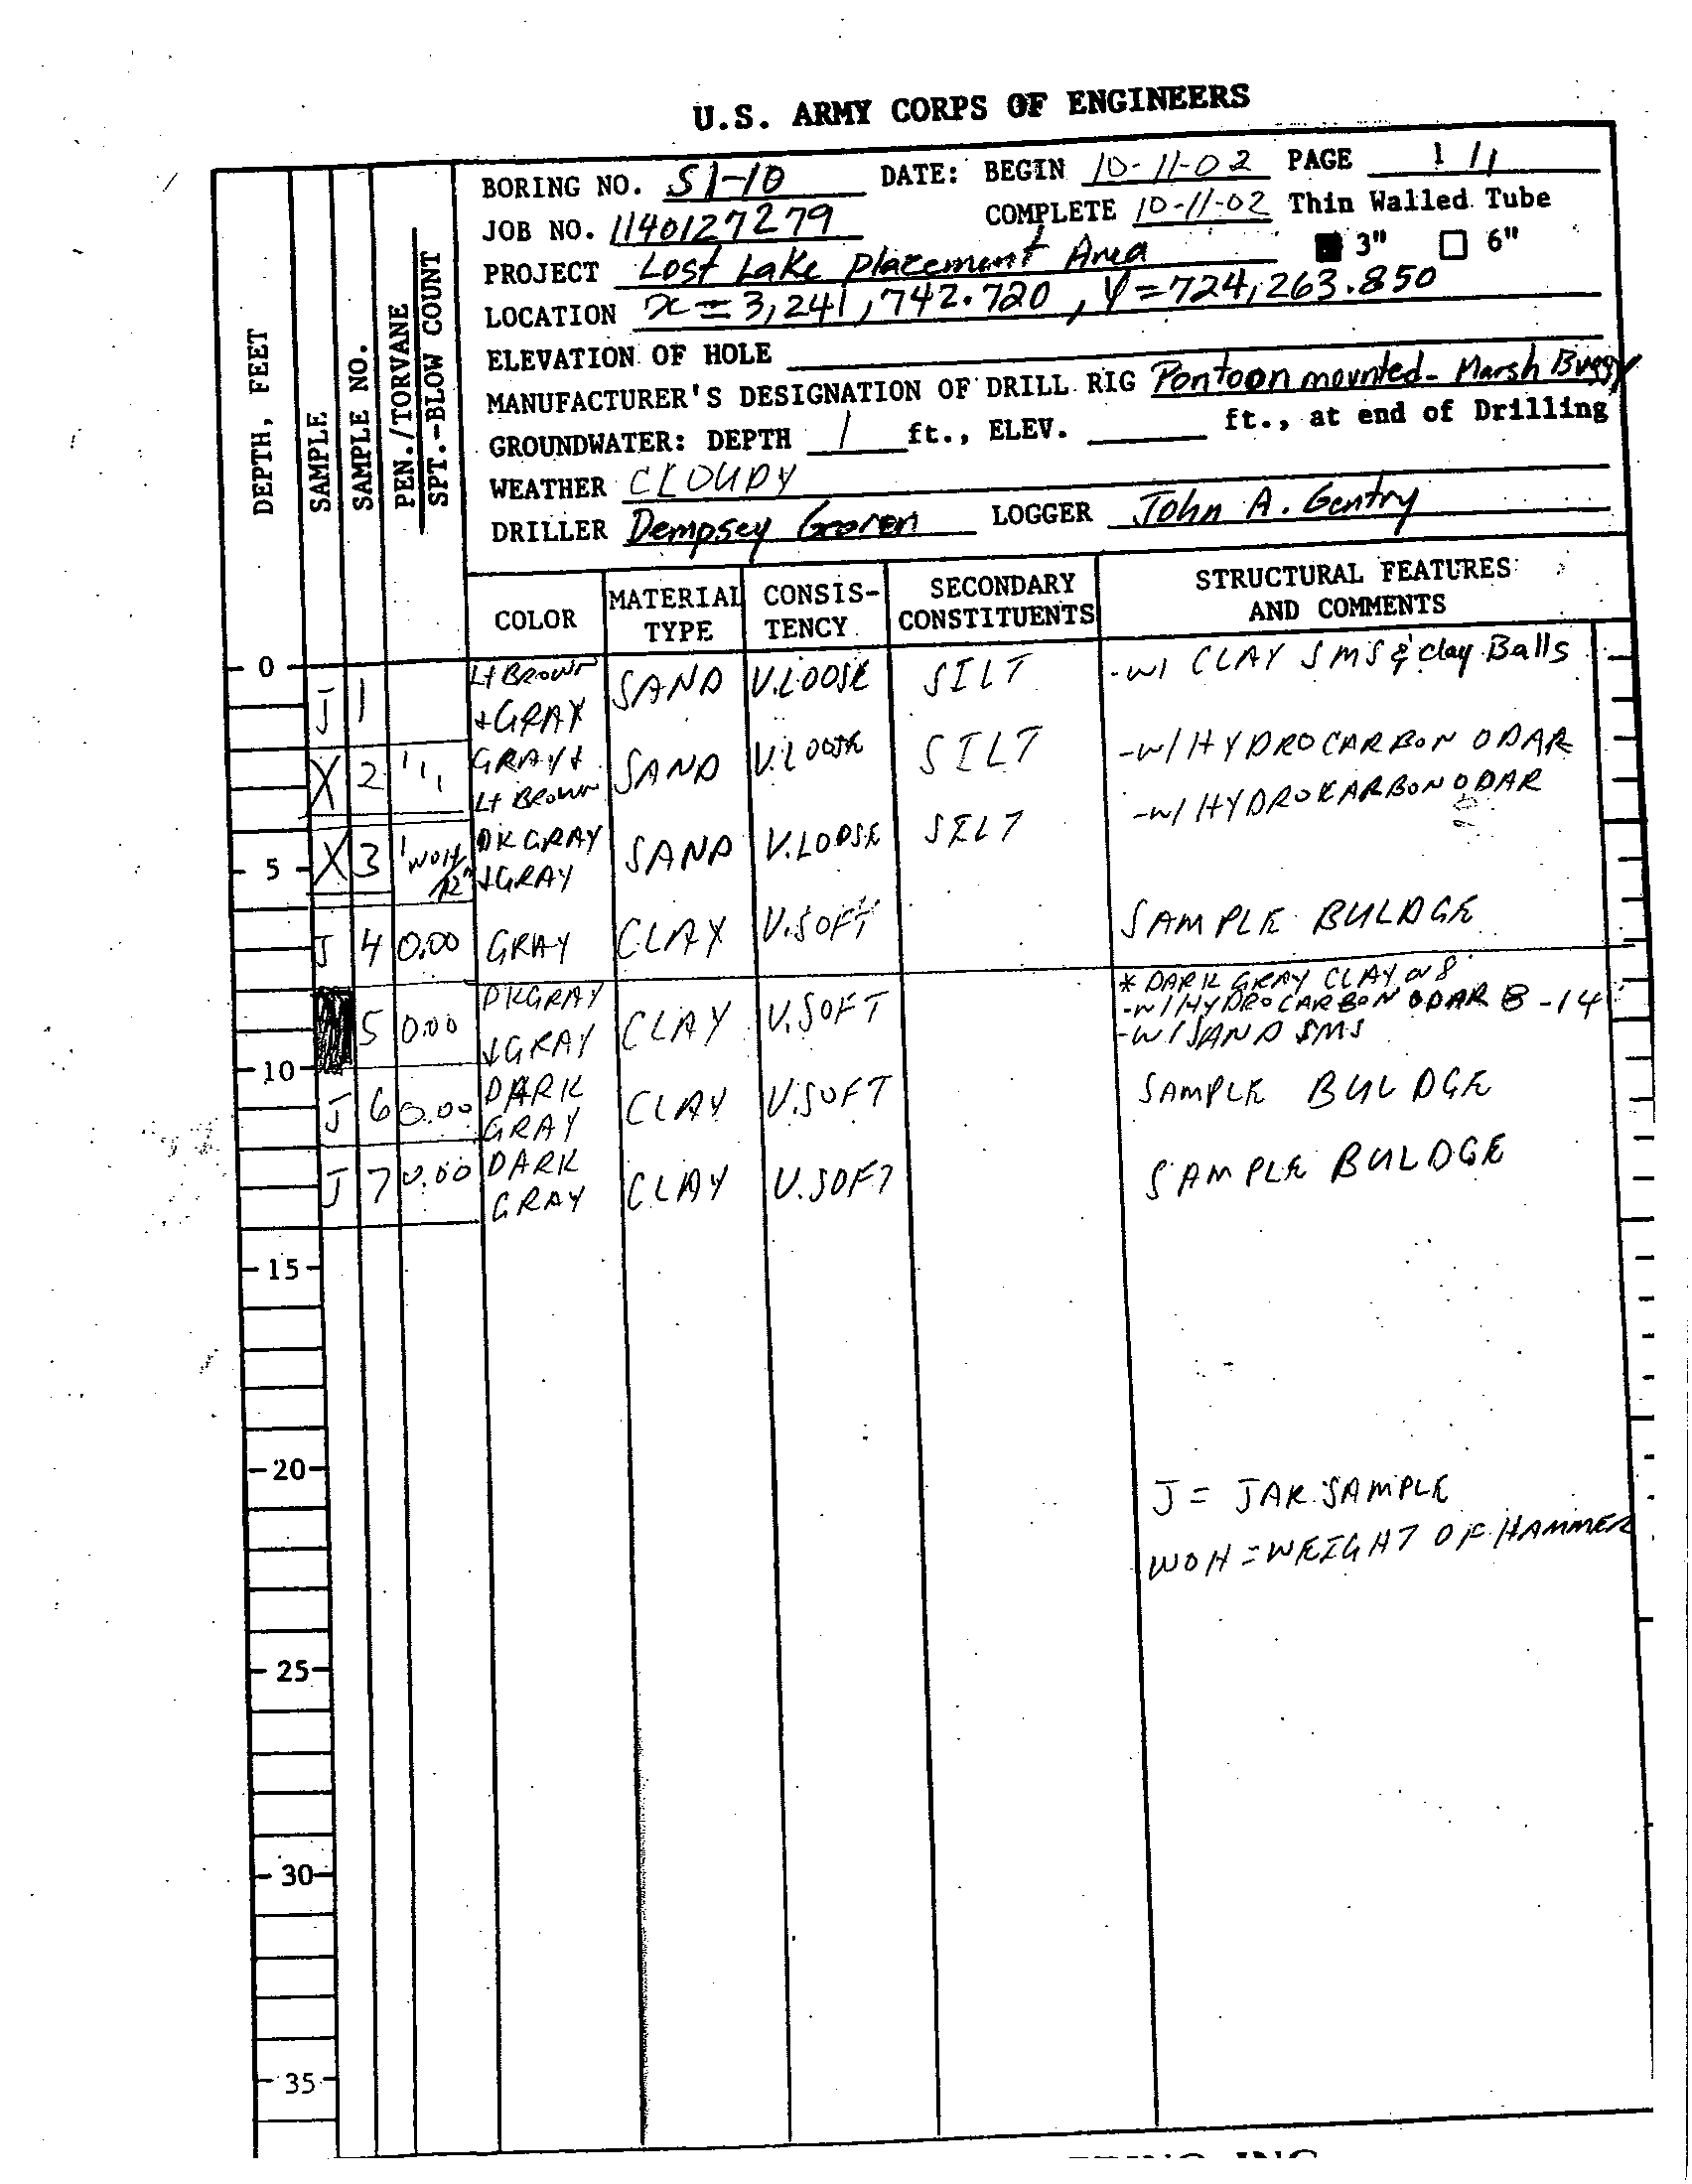 U.S. ARMY CORPS OF ENGINEERS
BORING NO. S1-10 DATE: BEGIN 10-11-02 PAGE 1/1
JOB NO. 1140127279 COMPLETE 10-11-02 Thin Walled Tube
PROJECT Lost Lake Placement Area 3" 6"
LOCATION x=3,241,742.720, Y=724,263.850
ELEVATION OF HOLE
MANUFACTURER'S DESIGNATION OF DRILL RIG Pontoon mounted - Marsh Buggy
GROUNDWATER: DEPTH 1 ft., ELEV. ft., at end of Drilling
WEATHER CLOUDY
DRILLER Dempsey LOGGER John A. Gentry
DEPTH, FEET
SAMPLE
SAMPLE NO.
PEN./TORVANE
SPT.-BLOW COUNT
COLOR MATERIAL TYPE CONSIS-TENCY SECONDARY CONSTITUENTS STRUCTURAL FEATURES AND COMMENTS
0
J 1 Lt BROWN +GRAY SAND V.LOOSE SILT -W/ CLAY SMS & clay Balls
X 2 1/1/1 GRAY+ Lt BROWN SAND V.LOOSE SILT -W/ HYDROCARBON ODAR
5
X 3 1/WOH/12" DK GRAY +GRAY SAND V.LOOSE SILT -W/ HYDROKARBON ODAR
J 4 0.00 GRAY CLAY V.SOFT SAMPLE BULDGE
5 0.00 DKGRAY +GRAY CLAY V.SOFT * DARK GRAY CLAY @ 8'
-W/ HYDROCARBON ODAR 8-14
-W/SAND SMS
10
J 6 0.00 DARK GRAY CLAY V.SOFT SAMPLE BULDGE
J 7 0.00 DARK GRAY CLAY V.SOFT SAMPLE BULDGE
15
20
J = JAR SAMPLE
WOH = WEIGHT OF HAMMER
25
30
35